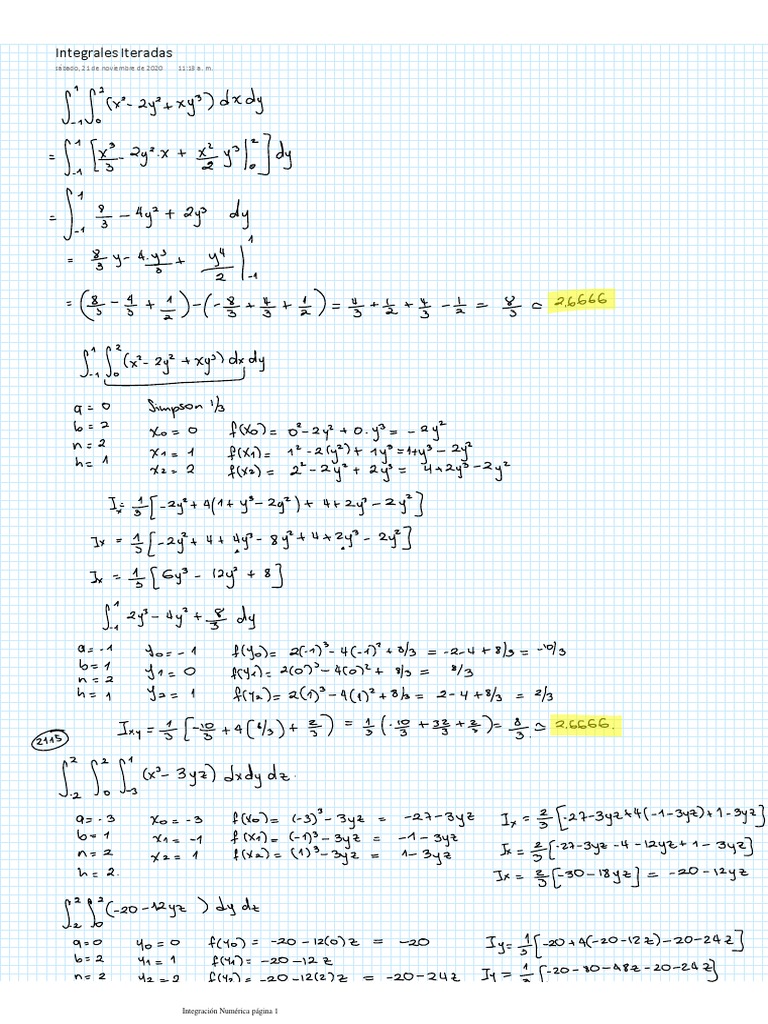 Integrales Iteradas
sábado, 21 de noviembre de 2020 11:18 a. m.
∫₋₁¹ ∫₀² (x² - 2y² + xy³) dx dy
= ∫₋₁¹ [x³/3 - 2y²·x + x²/2 y³ |₀²] dy
= ∫₋₁¹ 8/3 - 4y² + 2y³ dy
= 8/3 y - 4·y³/3 + y⁴/2 |₋₁¹
= (8/3 - 4/3 + 1/2) - (-8/3 + 4/3 + 1/2) = 4/3 + 1/2 + 4/3 - 1/2 = 8/3 ≃ 2.6666
∫₋₁¹ ∫₀² (x² - 2y² + xy³) dx dy
a = 0 Simpson 1/3
b = 2 x₀ = 0 f(x₀) = 0² - 2y² + 0·y³ = -2y²
n = 2 x₁ = 1 f(x₁) = 1² - 2(y²) + 1y³ = 1+y³ - 2y²
h = 1 x₂ = 2 f(x₂) = 2² - 2y² + 2y³ = 4+2y³ - 2y²
Ix = 1/3 [-2y² + 4(1 + y³ - 2y²) + 4 + 2y³ - 2y²]
Ix = 1/3 [-2y² + 4 + 4y³ - 8y² + 4 + 2y³ - 2y²]
Ix = 1/3 [6y³ - 12y² + 8]
∫₋₁¹ 2y³ - 4y² + 8/3 dy
a = -1 y₀ = -1 f(y₀) = 2(-1)³ - 4(-1)² + 8/3 = -2 - 4 + 8/3 = -10/3
b = 1 y₁ = 0 f(y₁) = 2(0)³ - 4(0)² + 8/3 = 8/3
n = 2
h = 1 y₂ = 1 f(y₂) = 2(1)³ - 4(1)² + 8/3 = 2 - 4 + 8/3 = 2/3
Ixy = 1/3 [-10/3 + 4(8/3) + 2/3] = 1/3 (-10/3 + 32/3 + 2/3) = 8/3 ≃ 2.6666.
2115
∫₋₂² ∫₀² ∫₋₃¹ (x³ - 3yz) dx dy dz.
a = -3 x₀ = -3 f(x₀) = (-3)³ - 3yz = -27 - 3yz Ix = 2/3 [-27 - 3yz + 4(-1 - 3yz) + 1 - 3yz]
b = 1 x₁ = -1 f(x₁) = (-1)³ - 3yz = -1 - 3yz
n = 2 x₂ = 1 f(x₂) = (1)³ - 3yz = 1 - 3yz Ix = 2/3 [-27 - 3yz - 4 - 12yz + 1 - 3yz]
h = 2. Ix = 2/3 [-30 - 18yz] = -20 - 12yz
∫₋₂² ∫₀² (-20 - 12yz) dy dz
a = 0 y₀ = 0 f(y₀) = -20 - 12(0)z = -20 Iy = 1/3 [-20 + 4(-20 - 12z) - 20 - 24z]
b = 2 y₁ = 1 f(y₁) = -20 - 12z
n = 2 y₂ = 2 f(y₂) = -20 - 12(2)z = -20 - 24z Iy = 1/3 [-20 - 80 - 48z - 20 - 24z]
Integración Numérica página 1